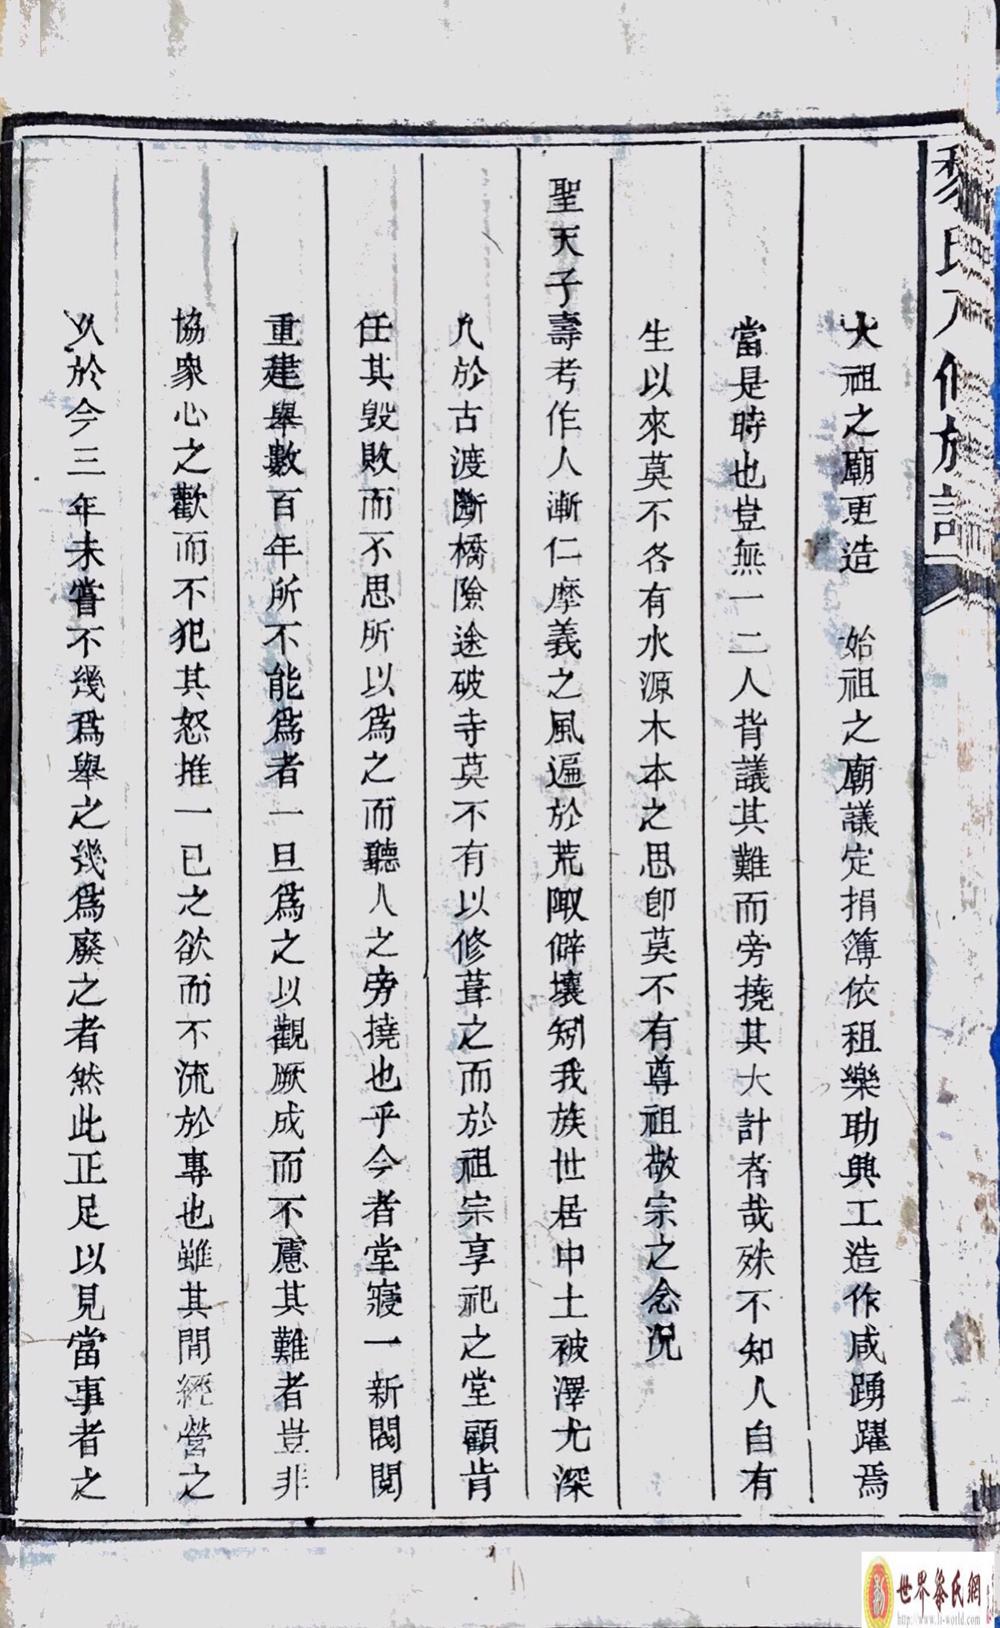 黎氏八修族譜
大祖之廟更造　始祖之廟議定捐簿依租樂助興工造作咸踴躍焉
當是時也豈無一二人背議其難而旁撓其大計者哉殊不知人自有
生以來莫不各有水源木本之思卽莫不有尊祖敬宗之念況
聖天子壽考作人漸仁摩義之風遍於荒陬僻壤矧我族世居中土被澤尤深
凡於古渡斷橋險途破寺莫不有以修葺之而於祖宗享祀之堂顧肯
任其毀敗而不思所以爲之而聽人之旁撓也乎今者堂寢一新閥閱
重建舉數百年所不能爲者一旦爲之以觀厥成而不慮其難者豈非
協衆心之歡而不犯其怒推一已之欲而不流於專也雖其間經營之
久於今三年未嘗不幾爲舉之幾爲廢之者然此正足以見當事者之
世界黎氏網
http://www.li-world.com